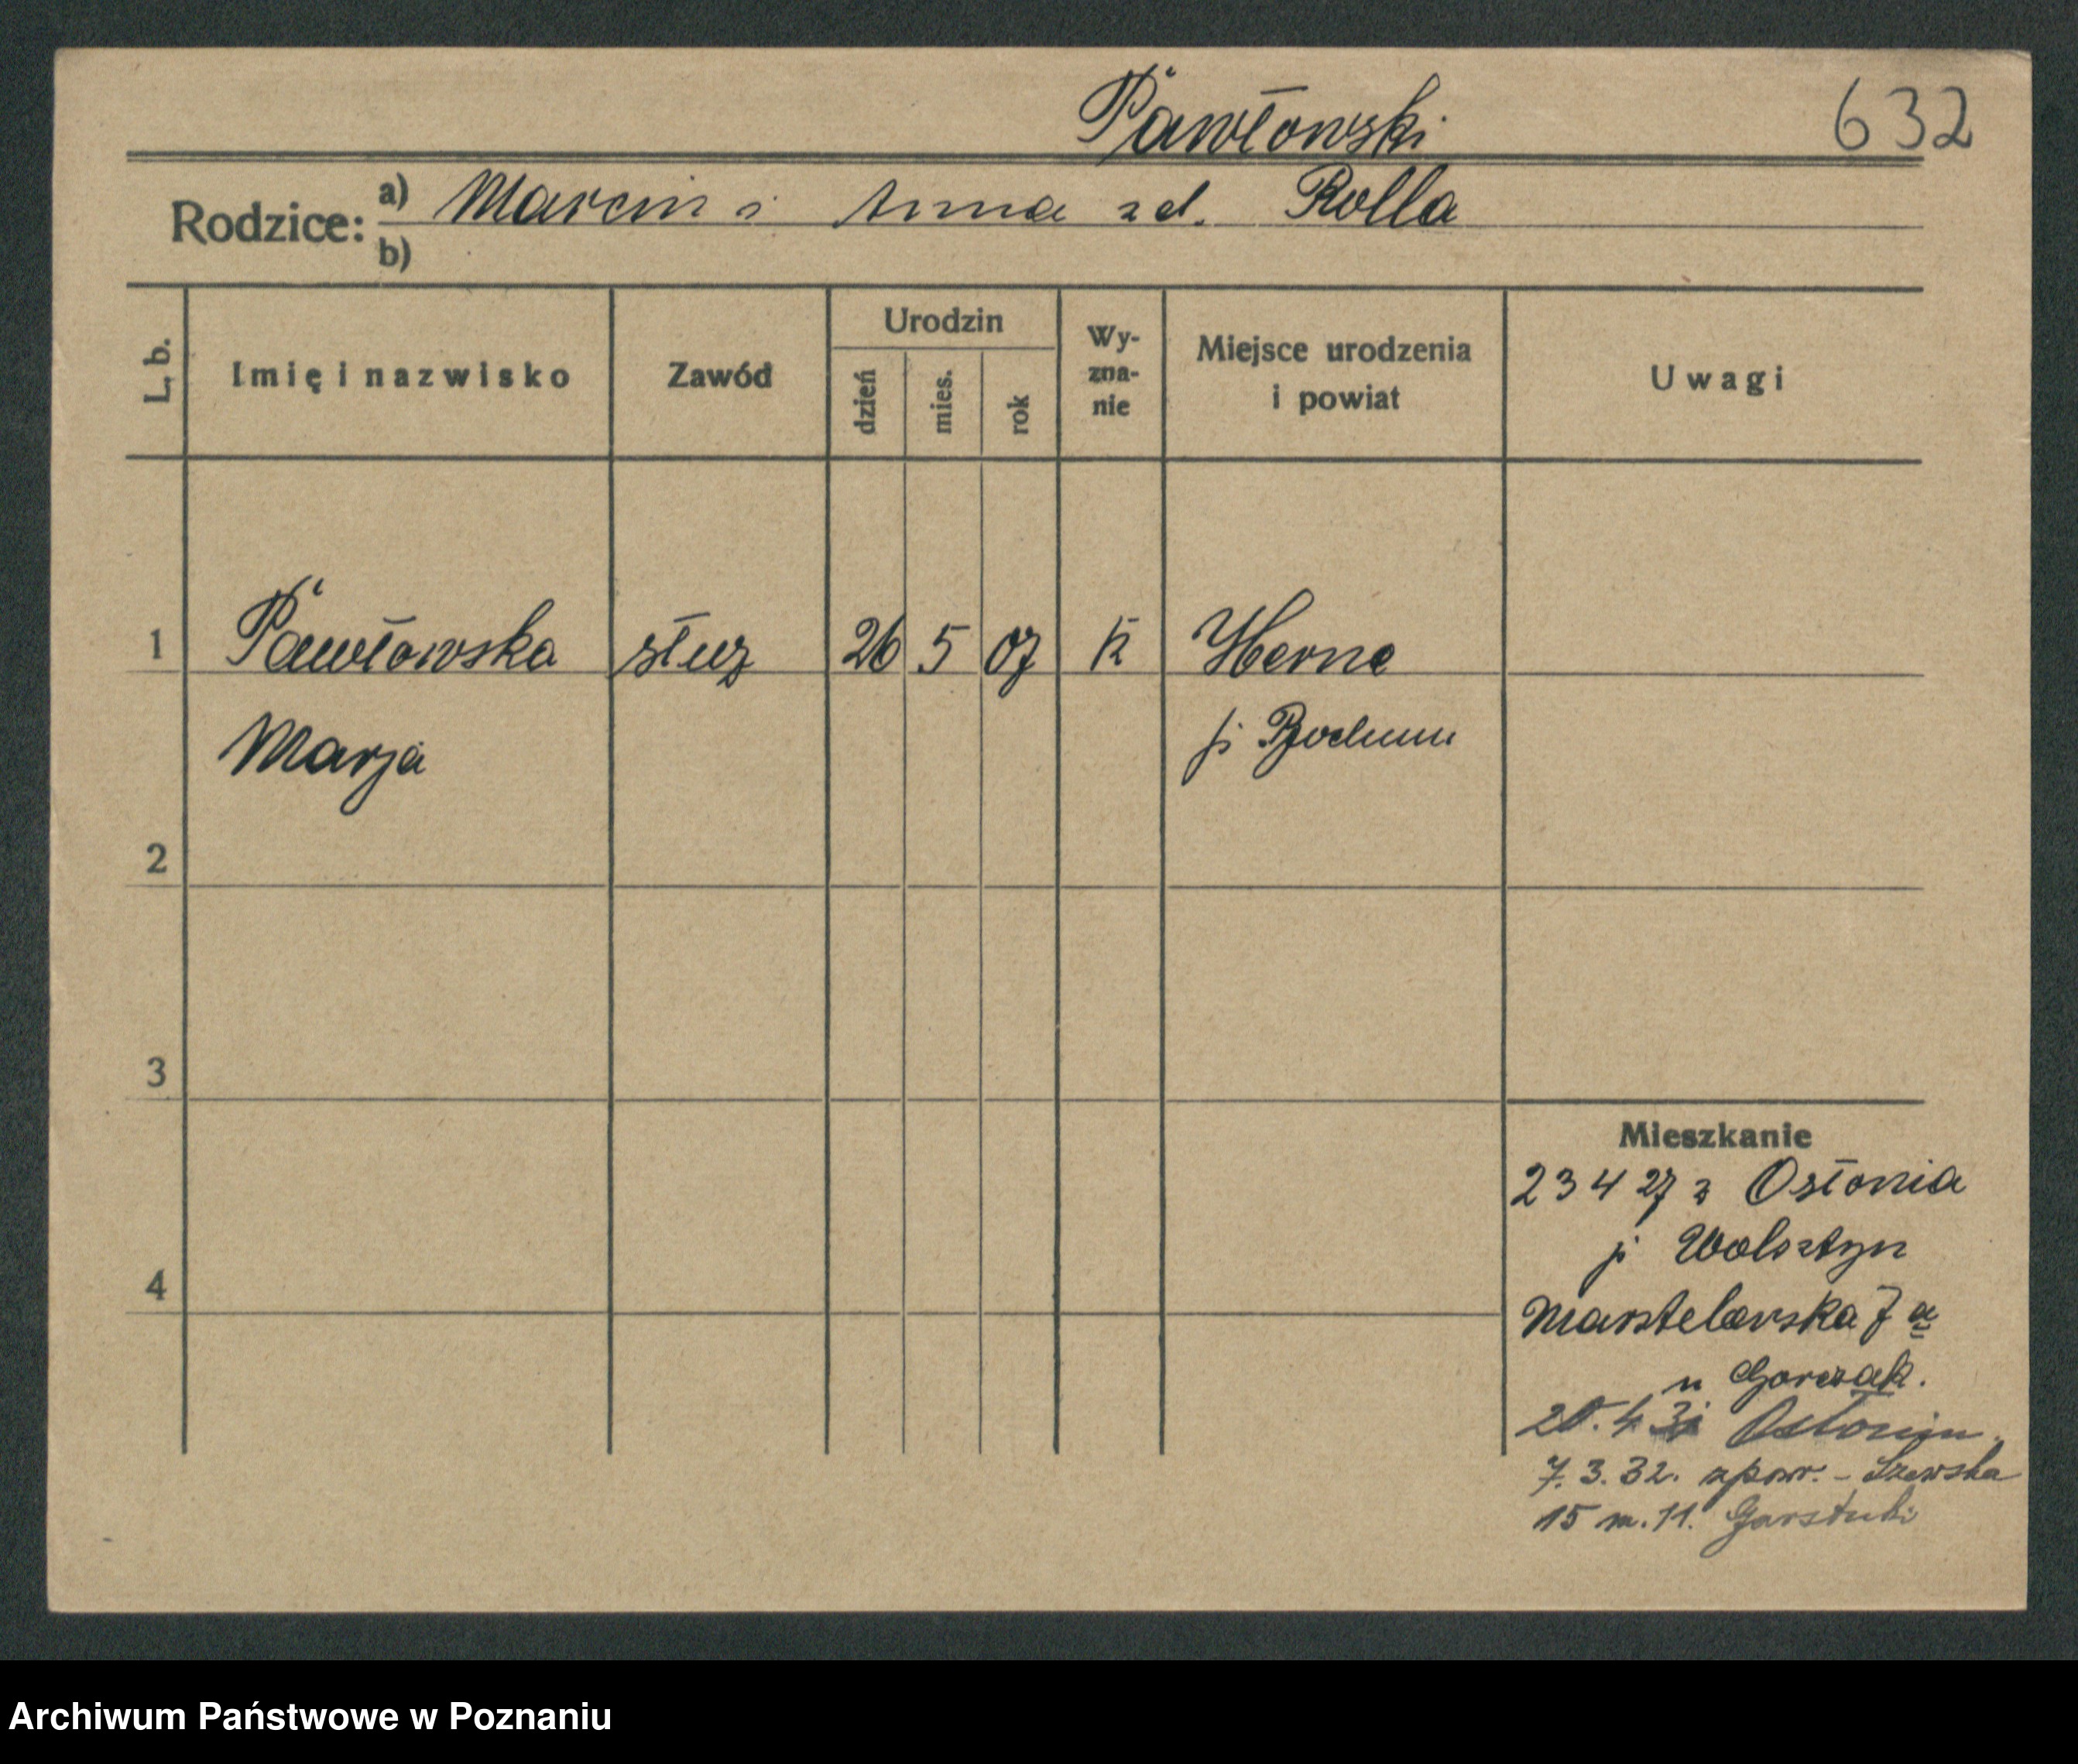 Pawłowski 632
Rodzice: a) Marcin i Anna zd. Rolla
b)
L. b. Imię i nazwisko Zawód Urodzin dzień mies. rok Wy-zna-nie Miejsce urodzenia i powiat Uwagi
1 Pawłowska służ 26 5 07 K Herne
Marja p Bochum
2
3
Mieszkanie
23 4 27 z Osłonia
p Wolsztyn
4
Marstelarska 7 a
u Gorczak.
20. 4 31 Osłonin.
7. 3. 32. zpow. - Szewska
15 m. 11. Garstecki
Archiwum Państwowe w Poznaniu